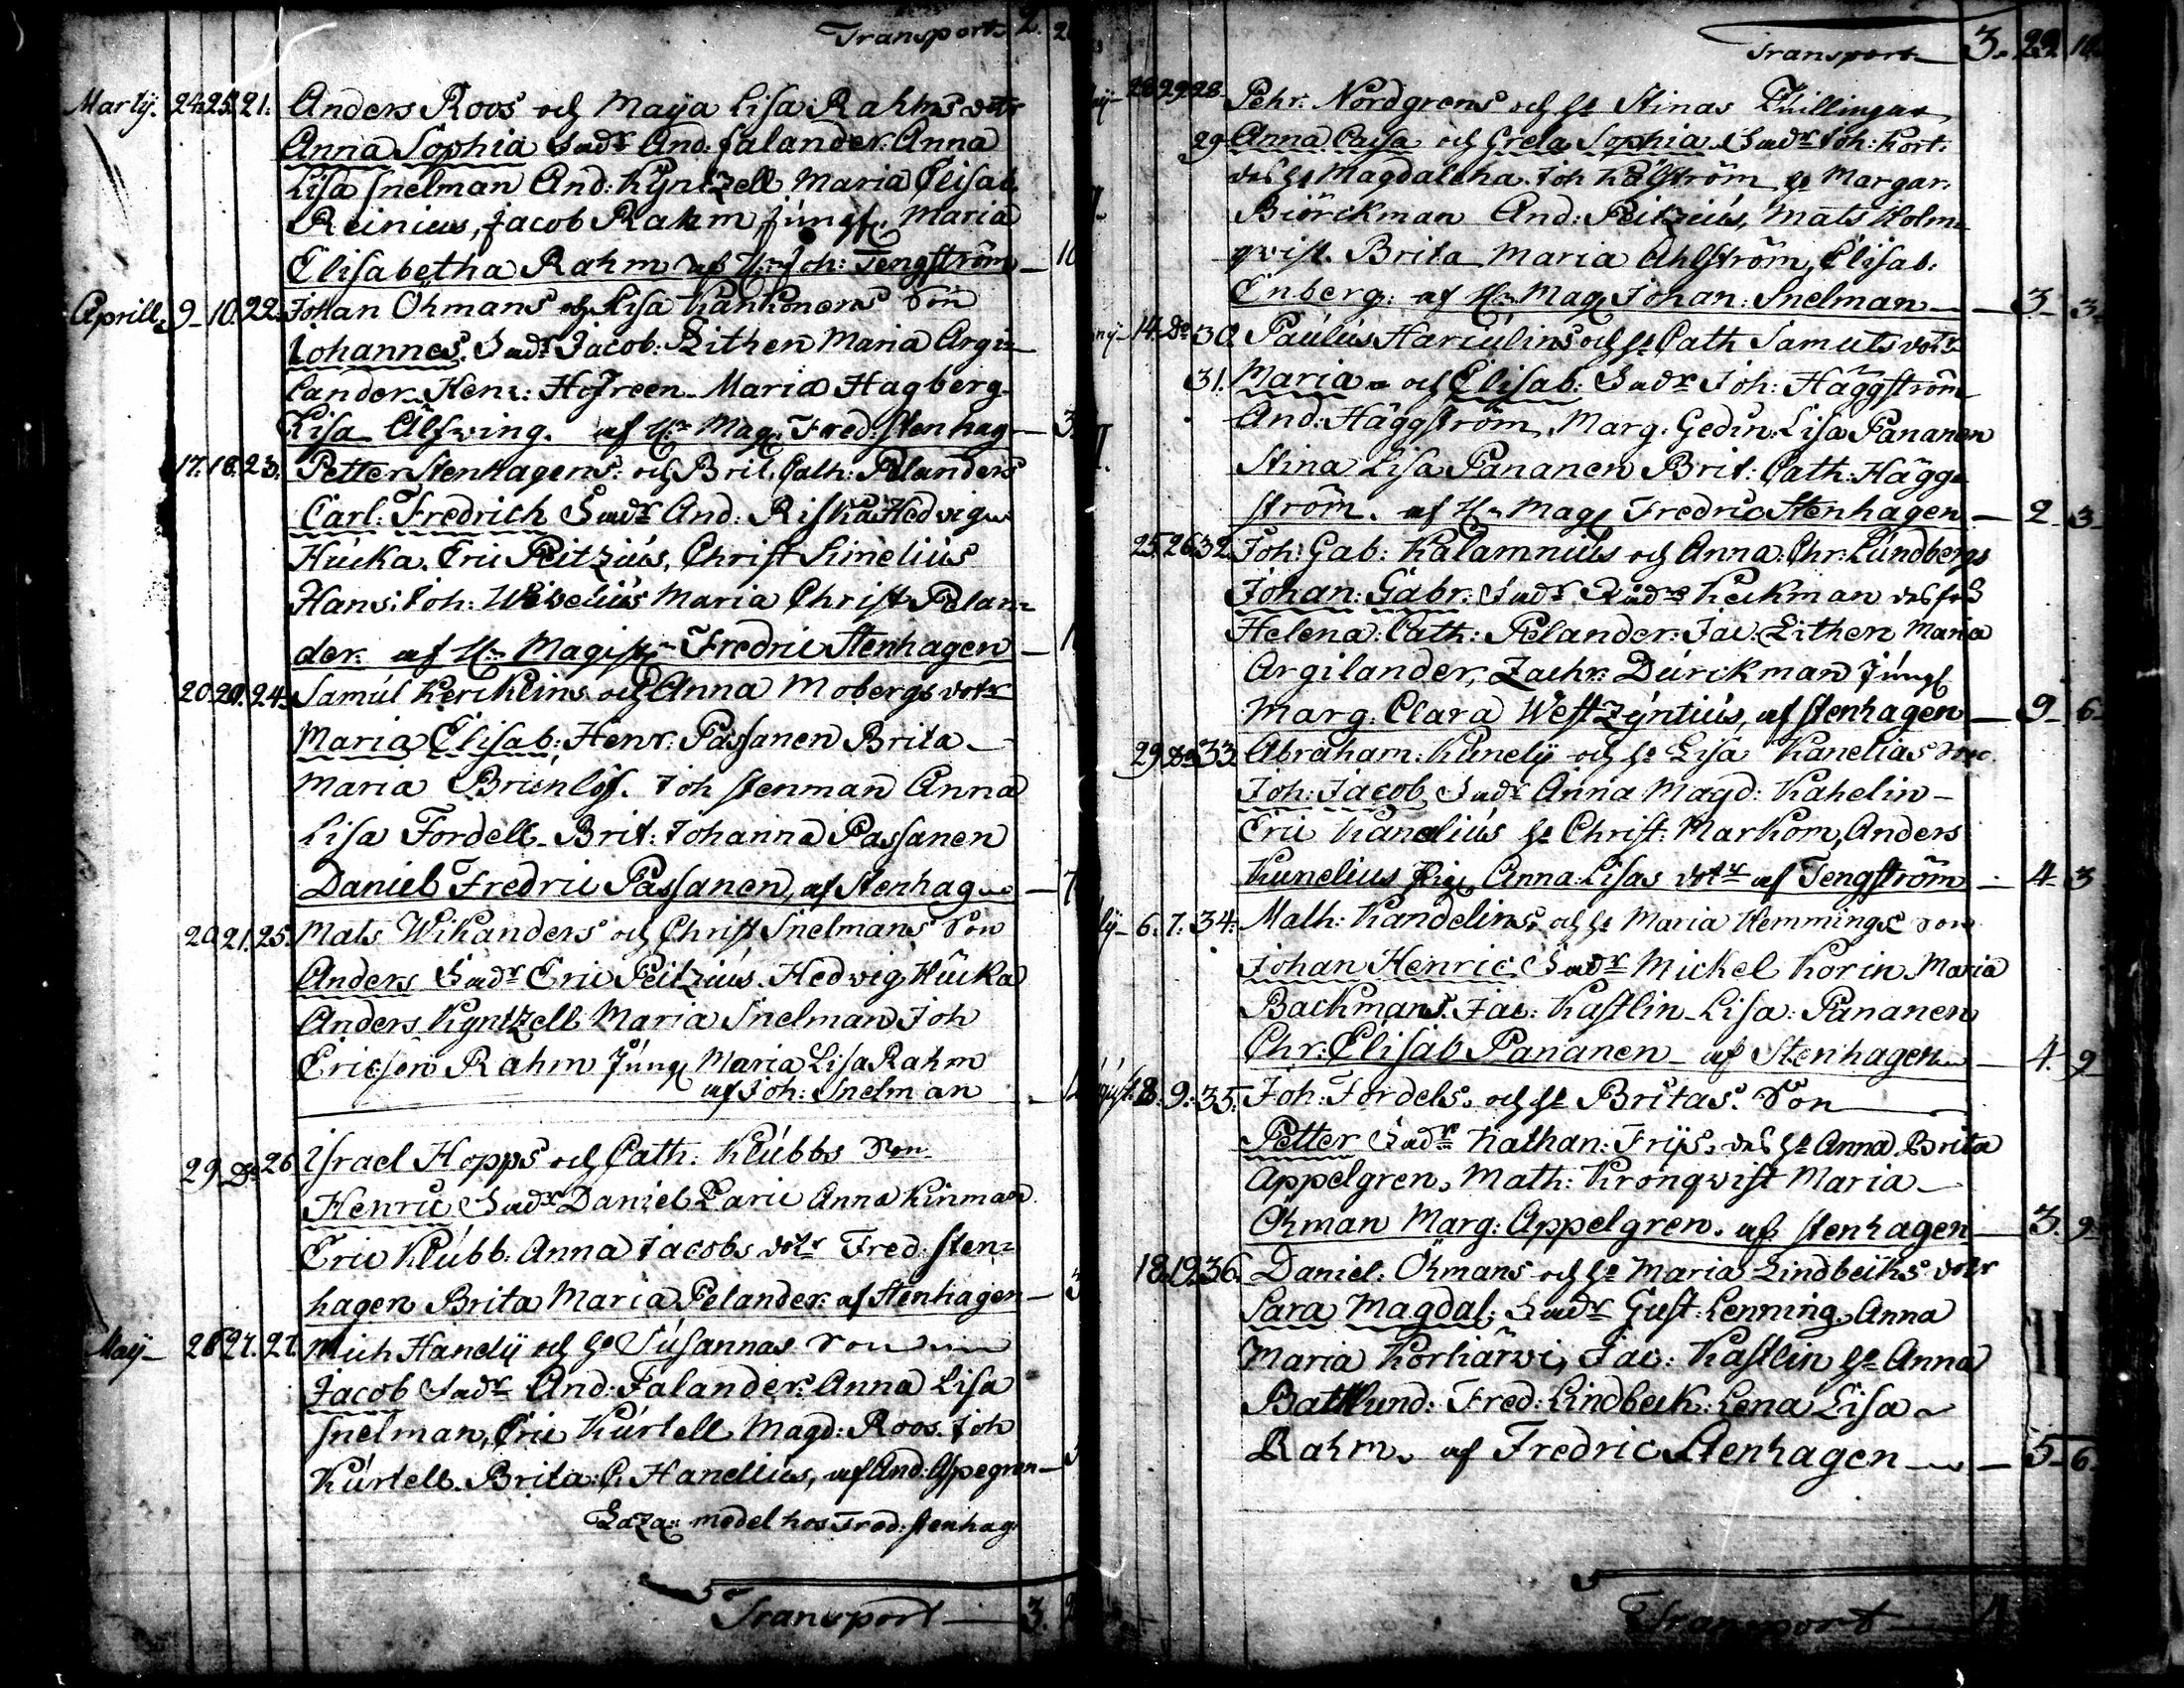 Transport 2.
Martij. 24. 25. 21. Anders Roos och Maija Lisa Rahms dotr
Anna Sophia Fadr And: Falander Anna
Lisa Snelman And: Kyntzell Maria Elisab.
Reinius, Jacob Rahm Jungf. Maria
Elisabetha Rahm af Hr Joh: Tengström — 10
Aprill 9. 10. 22. Johan Öhmans och Lisa Kankonens Son
Johannes. Fadr Jacob: Lithen Maria Argi=
lander Henr: Hofreen Maria Hagberg
Lisa Älfwing. af Hr Mag. Fred: Stenhag — 3.
17. 18. 23. Petter Stenhagens och Brit. Cath: Pelanders
Carl: Fredrich Fadr And: Riska Hedvig
Hucka. Eric Peitzius, Christ Simelius
Hans: Joh: Wiwelius Maria Christ Pelan=
der. af Hr Magist Fredric Stenhagen — 1
20. 20. 24. Samul Kercklins och Anna Mobergs dotr
Maria Elisab: Henr: Passanen Brita
Maria Brunlöf. Joh Stenman Anna
Lisa Fordell. Brit: Johanna Passanen
Daniel Fredric Passanen, af Stenhag — 7
20. 21. 25. Mats Wikanders och Christ Snelmans Son
Anders Fadr Eric Peitzius. Hedvig Hucka
Anders Kyntzell Maria Snelman Joh
Ericsen Rahm Jungf Maria Lisa Rahm
af Joh: Snelman
29. Do 26 Israel Hopps och Cath: Klubbs Son
Henric Fadr Daniel Parie Anna Kinman
Eric Klubb. Anna Jacobs dotr Fred: Sten=
hagen Brita Maria Pelander af Stenhagen — 3
Maij 26 27. 27. Mich Hanelij och H: Susannas Son
Jacob Fadr And: Falander Anna Lisa
Snelman, Eric Kurtell Magd: Roos. Joh
Kurtell. Brita: C. Hanelius, af And: Aspegren — 3
Laza: medel hos Fred: Stenhag
Transport — 3.
Transport — 3. 22
28 29 28 Pehr. Nordgrens och H: Stinas Thillingar
29 Anna Caisa och Greta Sophia Fadr Joh: Kort.
des H: Magdalena. Joh Kälström H: Margar.
Biörckman And: Peitzius, Mats Holm=
qvist. Brita Maria Ahlström, Elisab.
Enberg: af Hr Mag Johan: Snelman — 3. 3.
14. Do 30 Paulus Harculins och H: Cath Samuls dotr
31. Maria och Elisab: Fadr Joh: Häggström
And: Häggström, Marg: Gedin: Lisa Pananen
Stina Lisa Pananen Brit: Cath: Hägg=
ström. af Hr Mag Fredric Stenhagen — 2. 3.
25. 26. 32. Joh: Gab: Kalamnius och Anna: Chr: Lundbergs
Johan: Gabr: Fadr Kekman des fru
Helena: Cath: Pelander: Jac: Lithen Maria
Argilander, Zachr: Durckman Jungf
Marg. Clara Westzyntius, af Stenhagen — 9. 6.
29. Do 33. Abraham: Kunelij och H: Lisa Kanelias Son
Joh: Jacob, Fadr Anna Magd: Kahelin
Eric Kanelius H: Christ: Markom, Anders
Kunelius Pig. Anna Lisas dotr af Tengström — 4. 3
6. 7. 34: Math: Kandelins och H: Maria Hemmings Son
Johan Henric. Fadr Mickel Korin Maria
Backmans. Jac: Kastlin Lisa: Pananen
Chr: Elisab Pananen af Stenhagen — 4. 9
8. 9. 35. Joh: Fordels. och H: Britas. Son
Petter Fadr Nathan: Frijs, des H: Anna Brita
Appelgren. Math: Kronqvist Maria
Öhman Marg: Appelgren. af Stenhagen — 3. 9
18. 19. 36. Daniel: Öhmans och H: Maria Lindbecks dotr
Sara Magdal: Fadr Gust: Lenning, Anna
Maria Korhärwi, Jac: Kastlin H: Anna
Backlund: Fred: Lindbeck: Lena Lisa
Rahm. af Fredric Stenhagen — 5. 6.
Transport